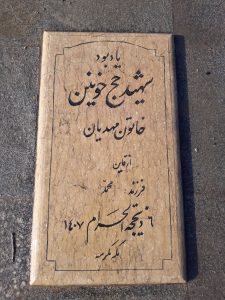 یادبود
شهید حج خونین
خاتون مهدیان
از قاین
فرزند محمد
۶ ذیحجه الحرام ۱۴۰۷
مکه مکرمه